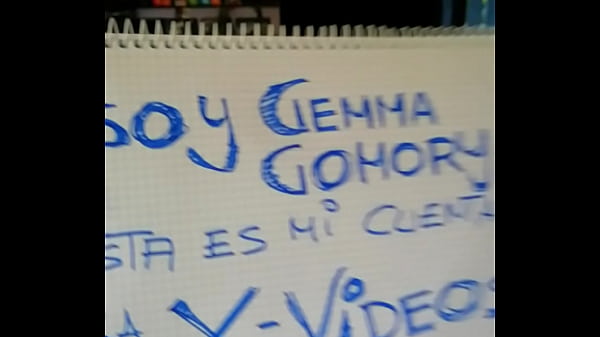 SOY GEMMA
GOMORY
ESTA ES MI CUENTA
V-VIDEOS